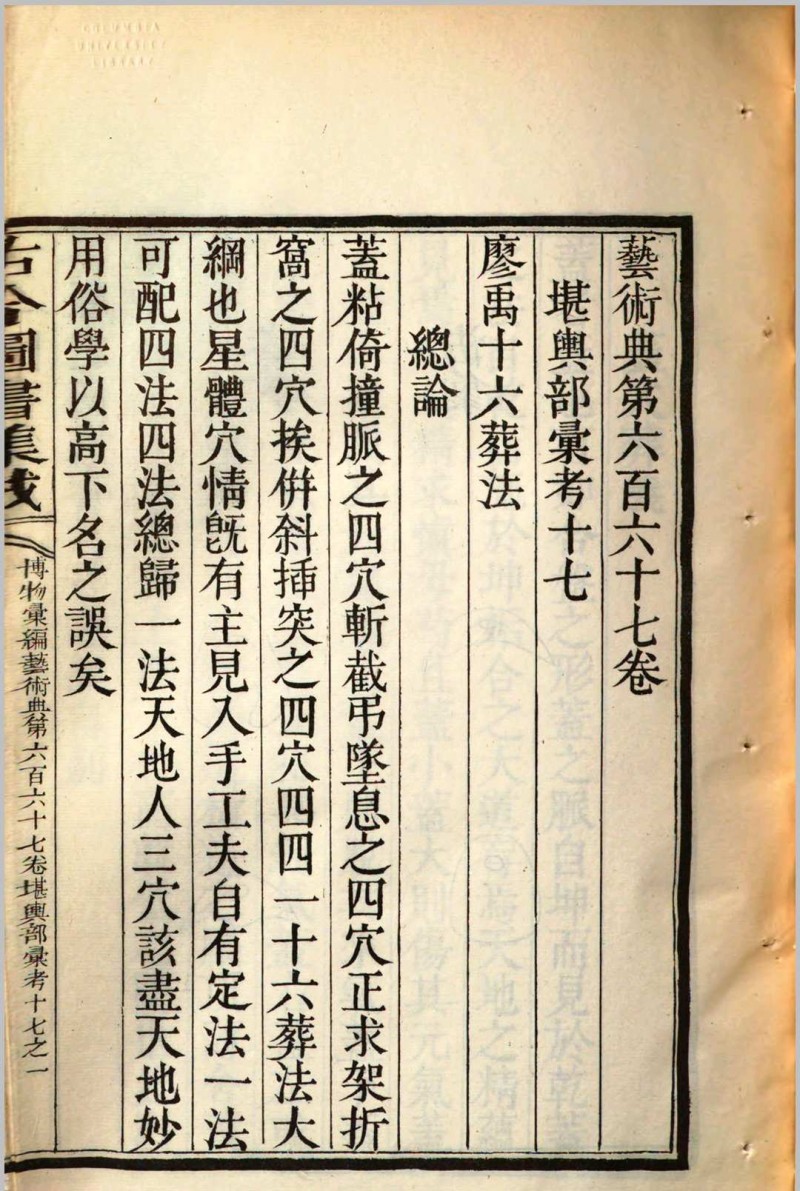 藝術典第六百六十七卷
堪輿部彙考十七
廖禹十六葬法
總論
蓋粘倚撞脈之四穴斬截弔墜息之四穴正求架折
窩之四穴挨倂斜揷突之四穴四四一十六葬法大
綱也星體穴情旣有主見入手工夫自有定法一法
可配四法四法總歸一法天地人三穴該盡天地妙
用俗學以高下名之誤矣
古今圖書集成
博物彙編藝術典第六百六十七卷堪輿部彙考十七之一
COLUMBIA
UNIVERSITY
LIBRARY